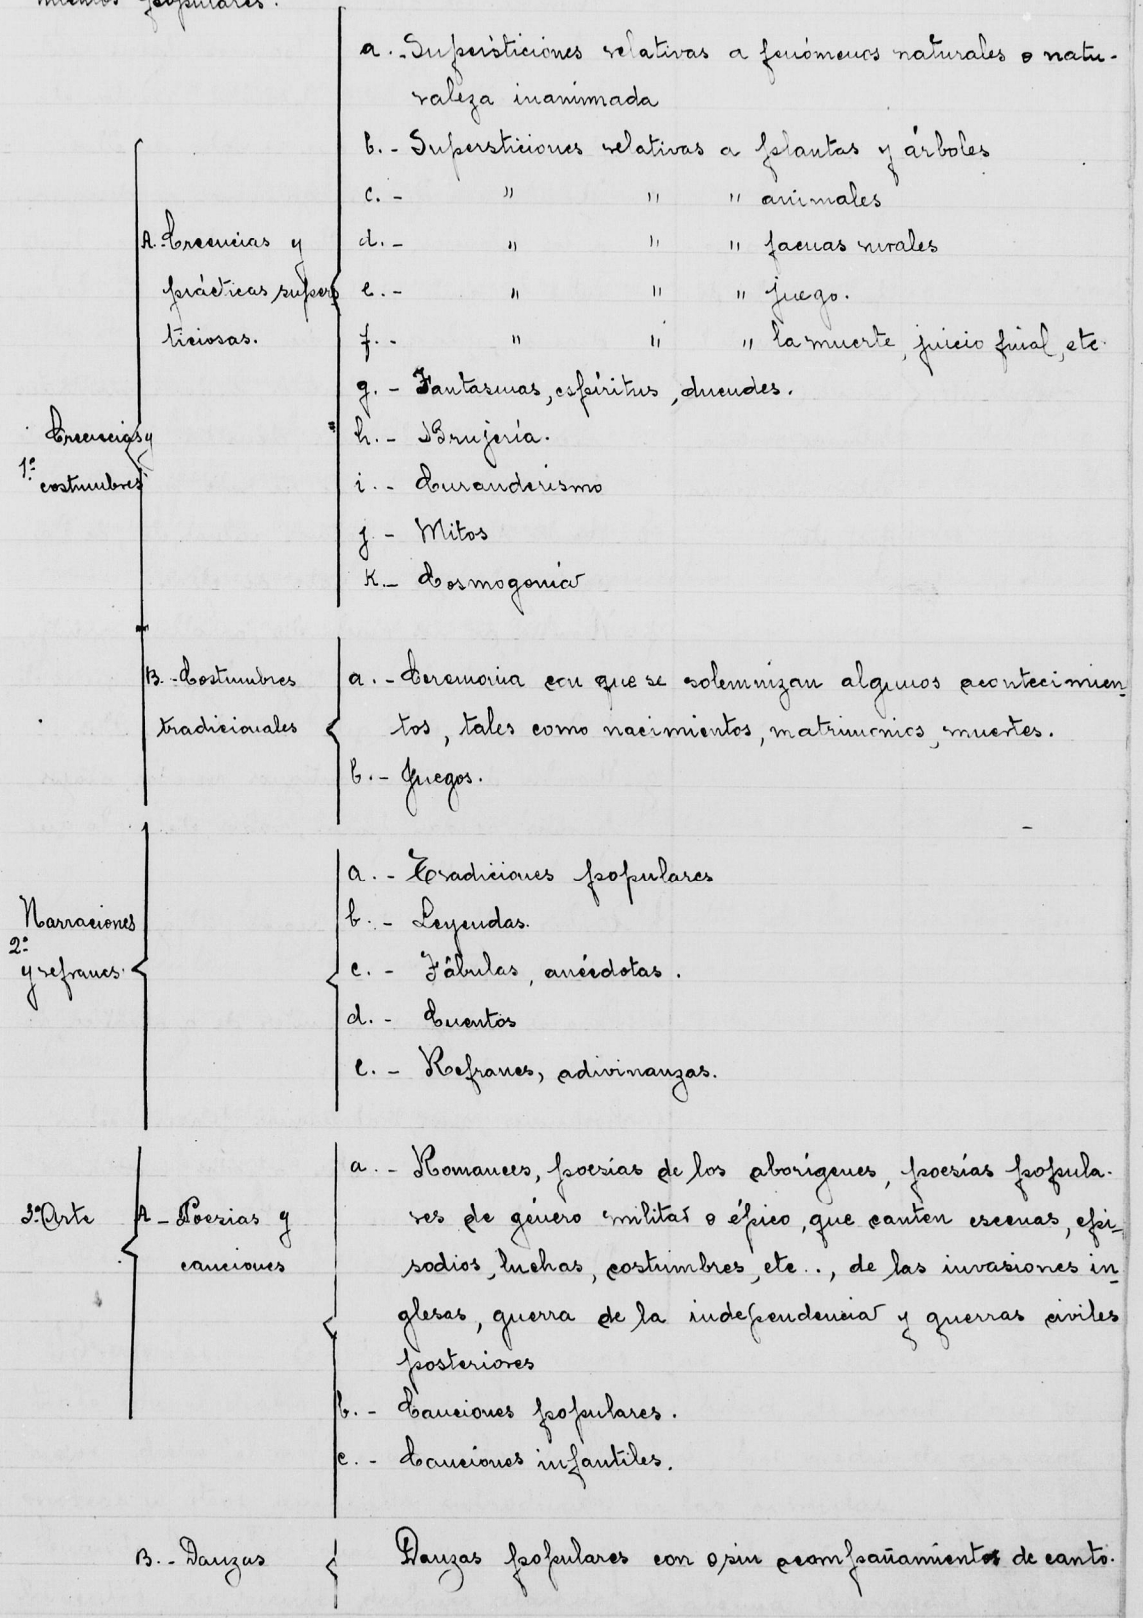 mientos populares.
a. - Supersticiones relativas a fenómenos naturales o natu-
raleza inanimada
b. - Supersticiones relativas a plantas y árboles
c. - " " " animales
A. Creencias y
d. - " " " faenas rurales
prácticas supers
e. - " " " juego.
ticiosas.
f. - " " " la muerte, juicio final, etc.
g. - Fantasmas, espíritus, duendes.
1º Creencias y
costumbres
h. - Brujería.
i. - Curanderismo
j - Mitos
k. - Cosmogonía
B. - Costumbres
tradicionales
a. - Ceremonia con que se solemnizan algunos acontecimien-
tos, tales como nacimientos, matrimonios, muertes.
b. - Juegos.
2º Narraciones
y refranes.
a. - Tradiciones populares
b. - Leyendas.
c. - Fábulas, anécdotas.
d. - Cuentos
e. - Refranes, adivinanzas.
3º Arte
A - Poesias y
canciones
a. - Romances, poesías de los aborígenes, poesías popula-
res de género militar o épico, que canten escenas, epi-
sodios, luchas, costumbres, etc.., de las invasiones in-
glesas, guerra de la independencia y guerras civiles
posteriores
b. - Canciones populares.
c. - Canciones infantiles.
B. - Danzas
Danzas populares con o sin acompañamiento de canto.